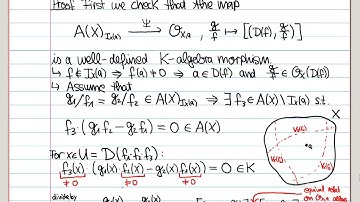 Proof First we check that the map
A(X)_{I_X(a)} —Ψ→ O_{X,a} , g/f ↦ [(D(f), g/f)]
is a well-defined K-algebra morphism.
↳ f ∉ I_X(a) ⇒ f(a) ≠ 0 ⇒ a ∈ D(f) and g/f ∈ O_X(D(f))
↳ Assume that
g₁/f₁ = g₂/f₂ ∈ A(X)_{I_X(a)} ⇒ ∃ f₃ ∈ A(X) \ I_X(a) s.t.
f₃ · (g₁f₂ − g₂f₁) = 0 ∈ A(X)
X
V(f₁)
V(f₂)
V(f₃)
•a
For x ∈ U = D(f₁f₂f₃) :
f₃(x) · (g₁(x) f₂(x) − g₂(x) f₁(x)) = 0 ∈ K
≠0 ≠0 ≠0
equival. relat.
on O_{X,a} allows
divide by